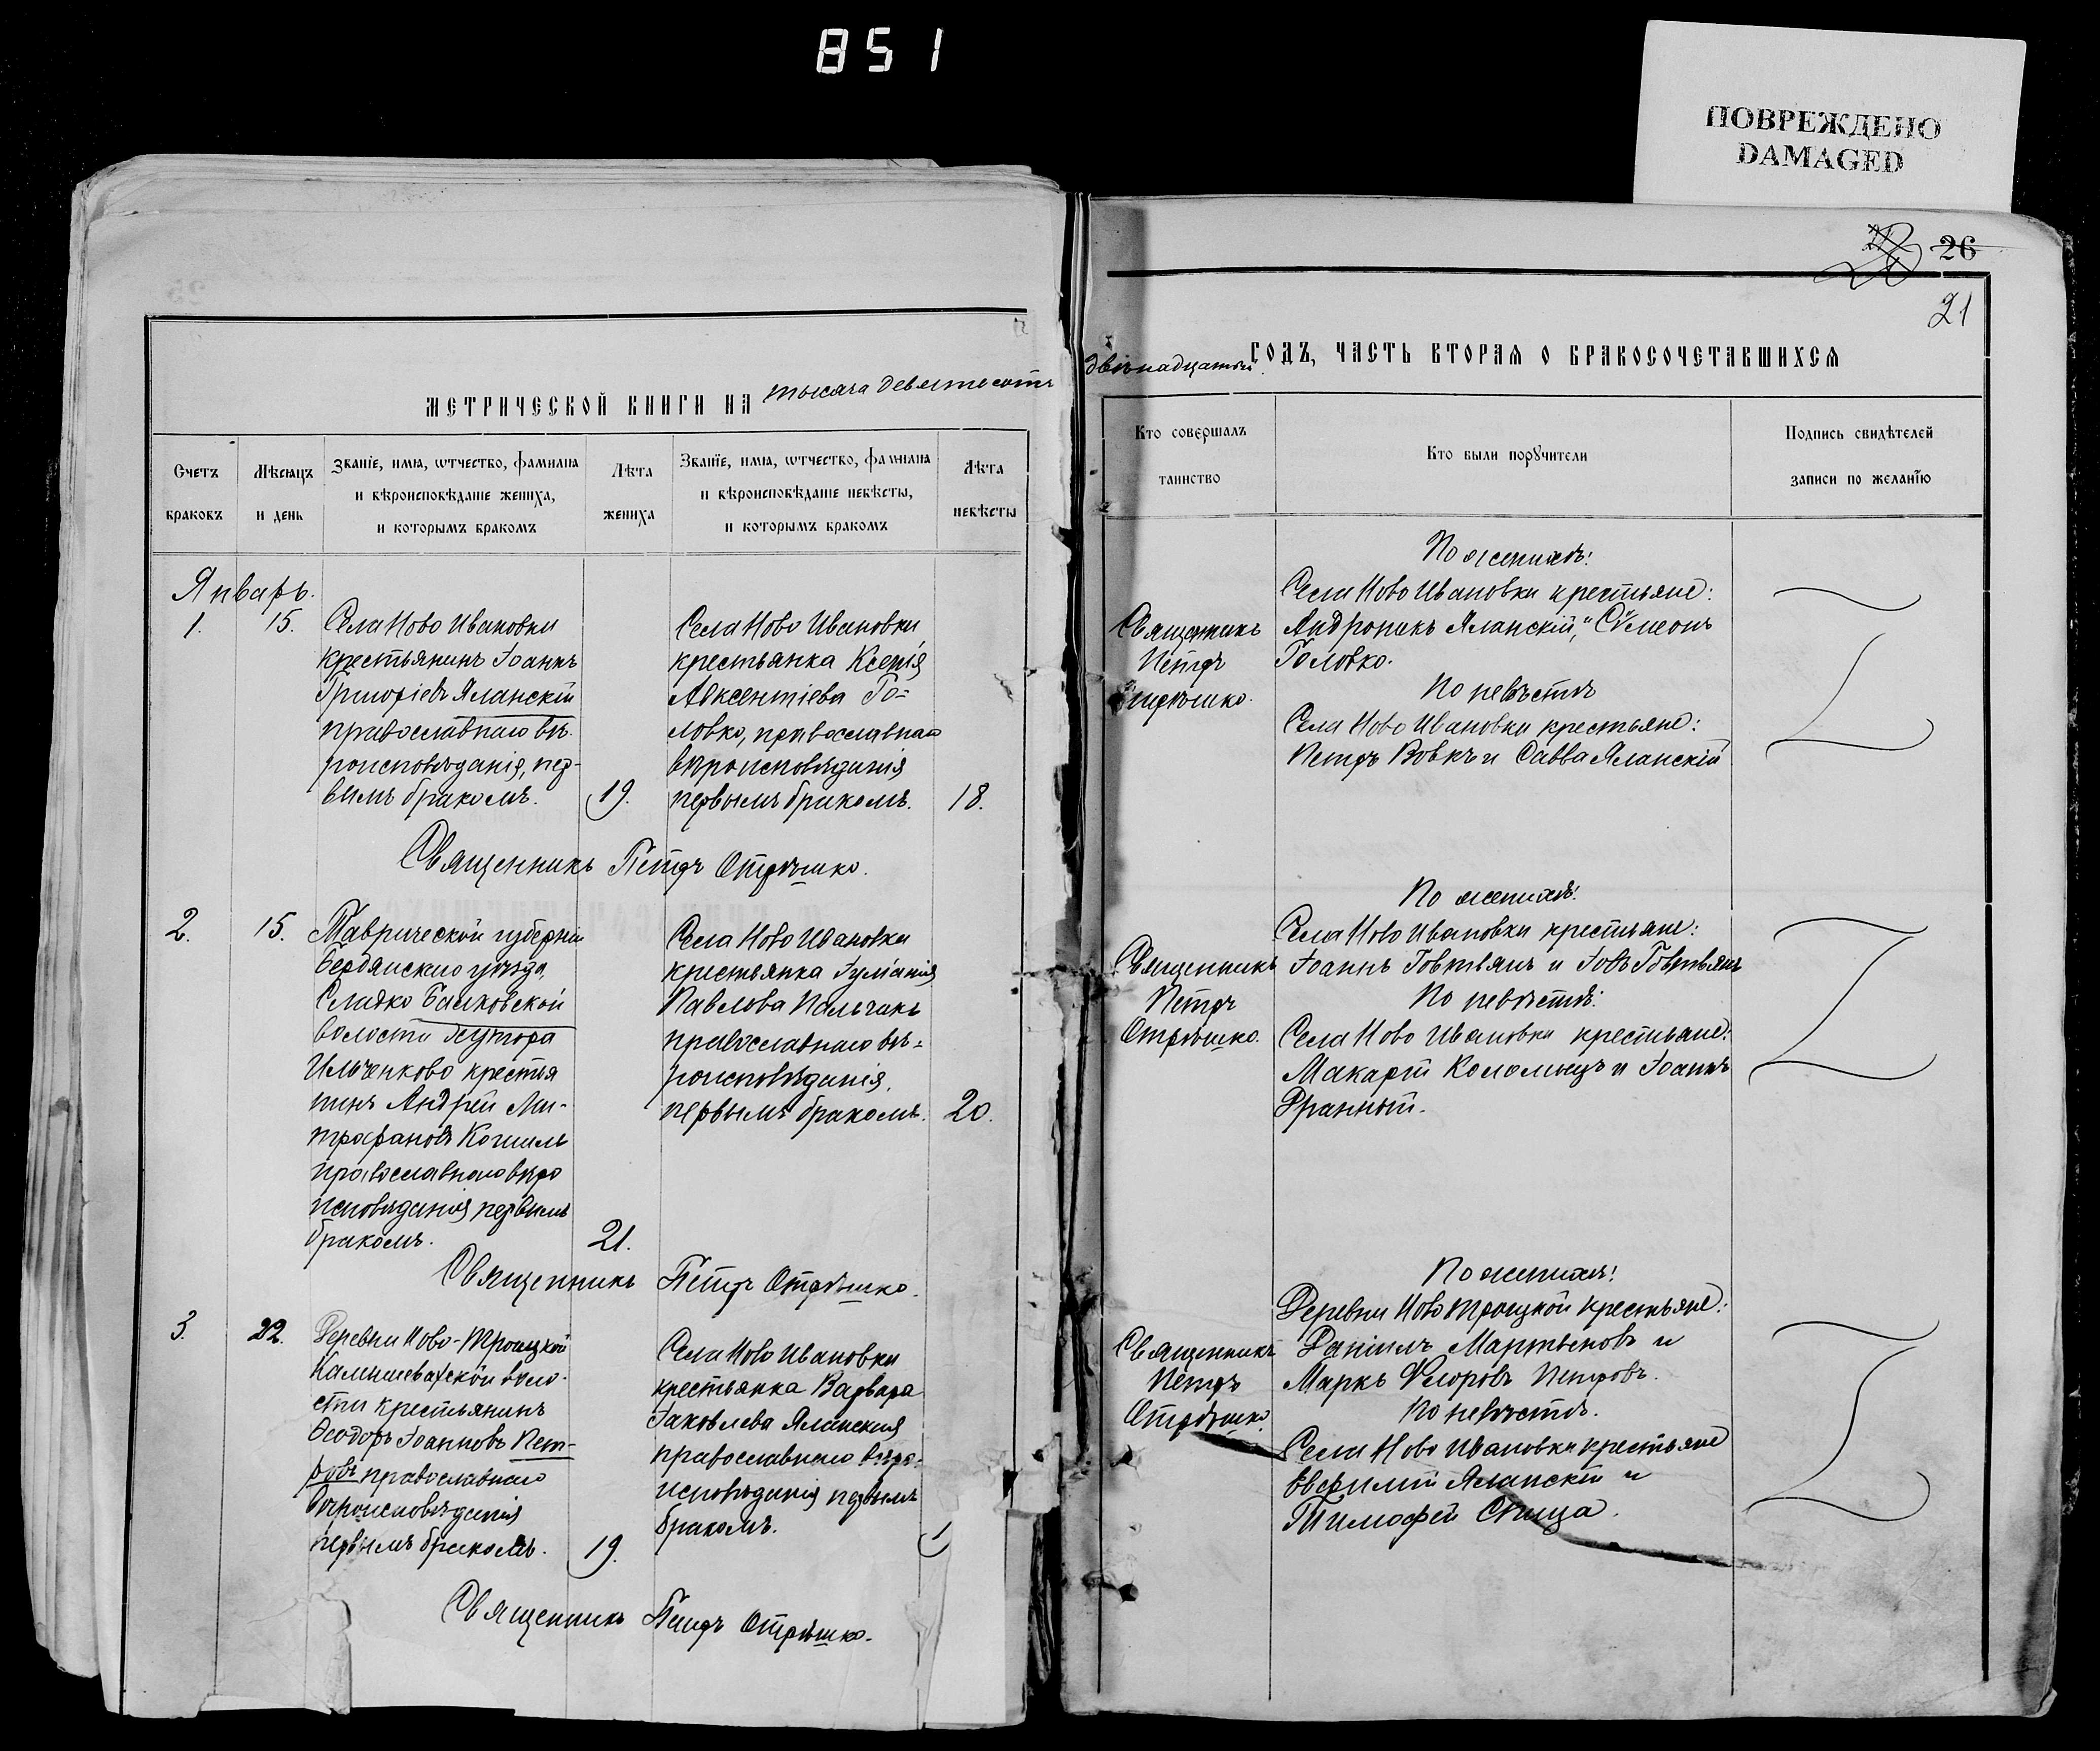 851
ПОВРЕЖДЕНО
DAMAGED
26
21
МЕТРИЧЕСКОЙ КНИГИ НА тысяча девятьсотъ
двѣнадцатый ГОДЪ, ЧАСТЬ ВТОРАЯ О БРАКОСОЧЕТАВШИХСЯ
Счетъ браковъ
Мѣсяцъ и день
Званіе, имя, ѿтчество, фамилія
и вѣроисповѣданіе жениха,
и которымъ бракомъ
Лѣта жениха
Званіе, имя, ѿтчество, фамилія
и вѣроисповѣданіе невѣсты,
и которымъ бракомъ
Лѣта невѣсты
Кто совершалъ
таинство
Кто были поручители
Подпись свидѣтелей
записи по желанію
Январь.
1.
15.
Села Ново Ивановки
крестьянинъ Іоаннъ
Григоріевъ Яланскій
православнаго вѣ-
роисповѣданія, пер-
вымъ бракомъ.
19.
Села Ново Ивановки
крестьянка Ксенія
Авксентіева Го=
ловко, православнаго
вѣроисповѣданія
первымъ бракомъ.
18.
Священникъ
Петръ
Отрѣшко.
По женихѣ:
Села Ново Ивановки крестьяне:
Андроникъ Яланскій, и Сѵмеонъ
Головко.
По невѣстѣ
Села Ново Ивановки крестьяне:
Петръ Вовкъ и Савва Яланскій
Священникъ Петръ Отрѣшко.
2.
15.
Таврической губерніи
Бердянскаго уѣзда,
Сладко Балковской
волости хутора
Ильченково крестья
нинъ Андрей Ми-
трофановъ Кошиль
православнаго вѣро
исповѣданія первымъ
бракомъ.
21.
Села Ново Ивановки
крестьянка Іуліанія
Павлова Пальчакъ
православнаго вѣ=
роисповѣданія,
первымъ бракомъ.
20.
Священникъ
Петръ
Отрѣшко.
По женихѣ:
Села Ново Ивановки крестьяне:
Іоаннъ Говтвянъ и Іовъ Говтвянъ
По невѣстѣ:
Села Ново Ивановки крестьяне:
Макарій Коломыецъ и Іоаннъ
Дранный.
Священникъ Петръ Отрѣшко.
3.
22.
Деревни Ново-Троицкой
Камышеватской воло-
сти крестьянинъ
Ѳеодоръ Іоанновъ Пет-
ровъ православнаго
вѣроисповѣданія
первымъ бракомъ.
19.
Села Ново Ивановки
крестьянка Варвара
Іаковлева Яланская
православнаго вѣро-
исповѣданія первымъ
бракомъ.
1
Священникъ
Петръ
Отрѣшко.
По женихѣ:
Деревни Ново Троицкой крестьяне:
Даніилъ Мартыновъ и
Маркъ Флоровъ Петровъ.
По невѣстѣ.
Села Ново Ивановки крестьяне
Евфимій Яланскій и
Тимофей Спица.
Священникъ Петръ Отрѣшко.